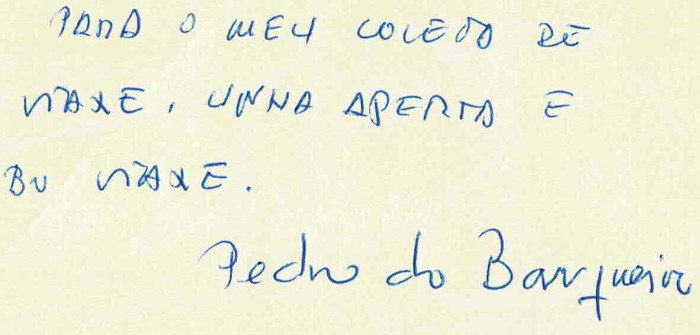 PARA O MEU COLEGA DE
VIAXE, UNHA APERTA E
BO VIAXE.
Pedro do Barqueiro